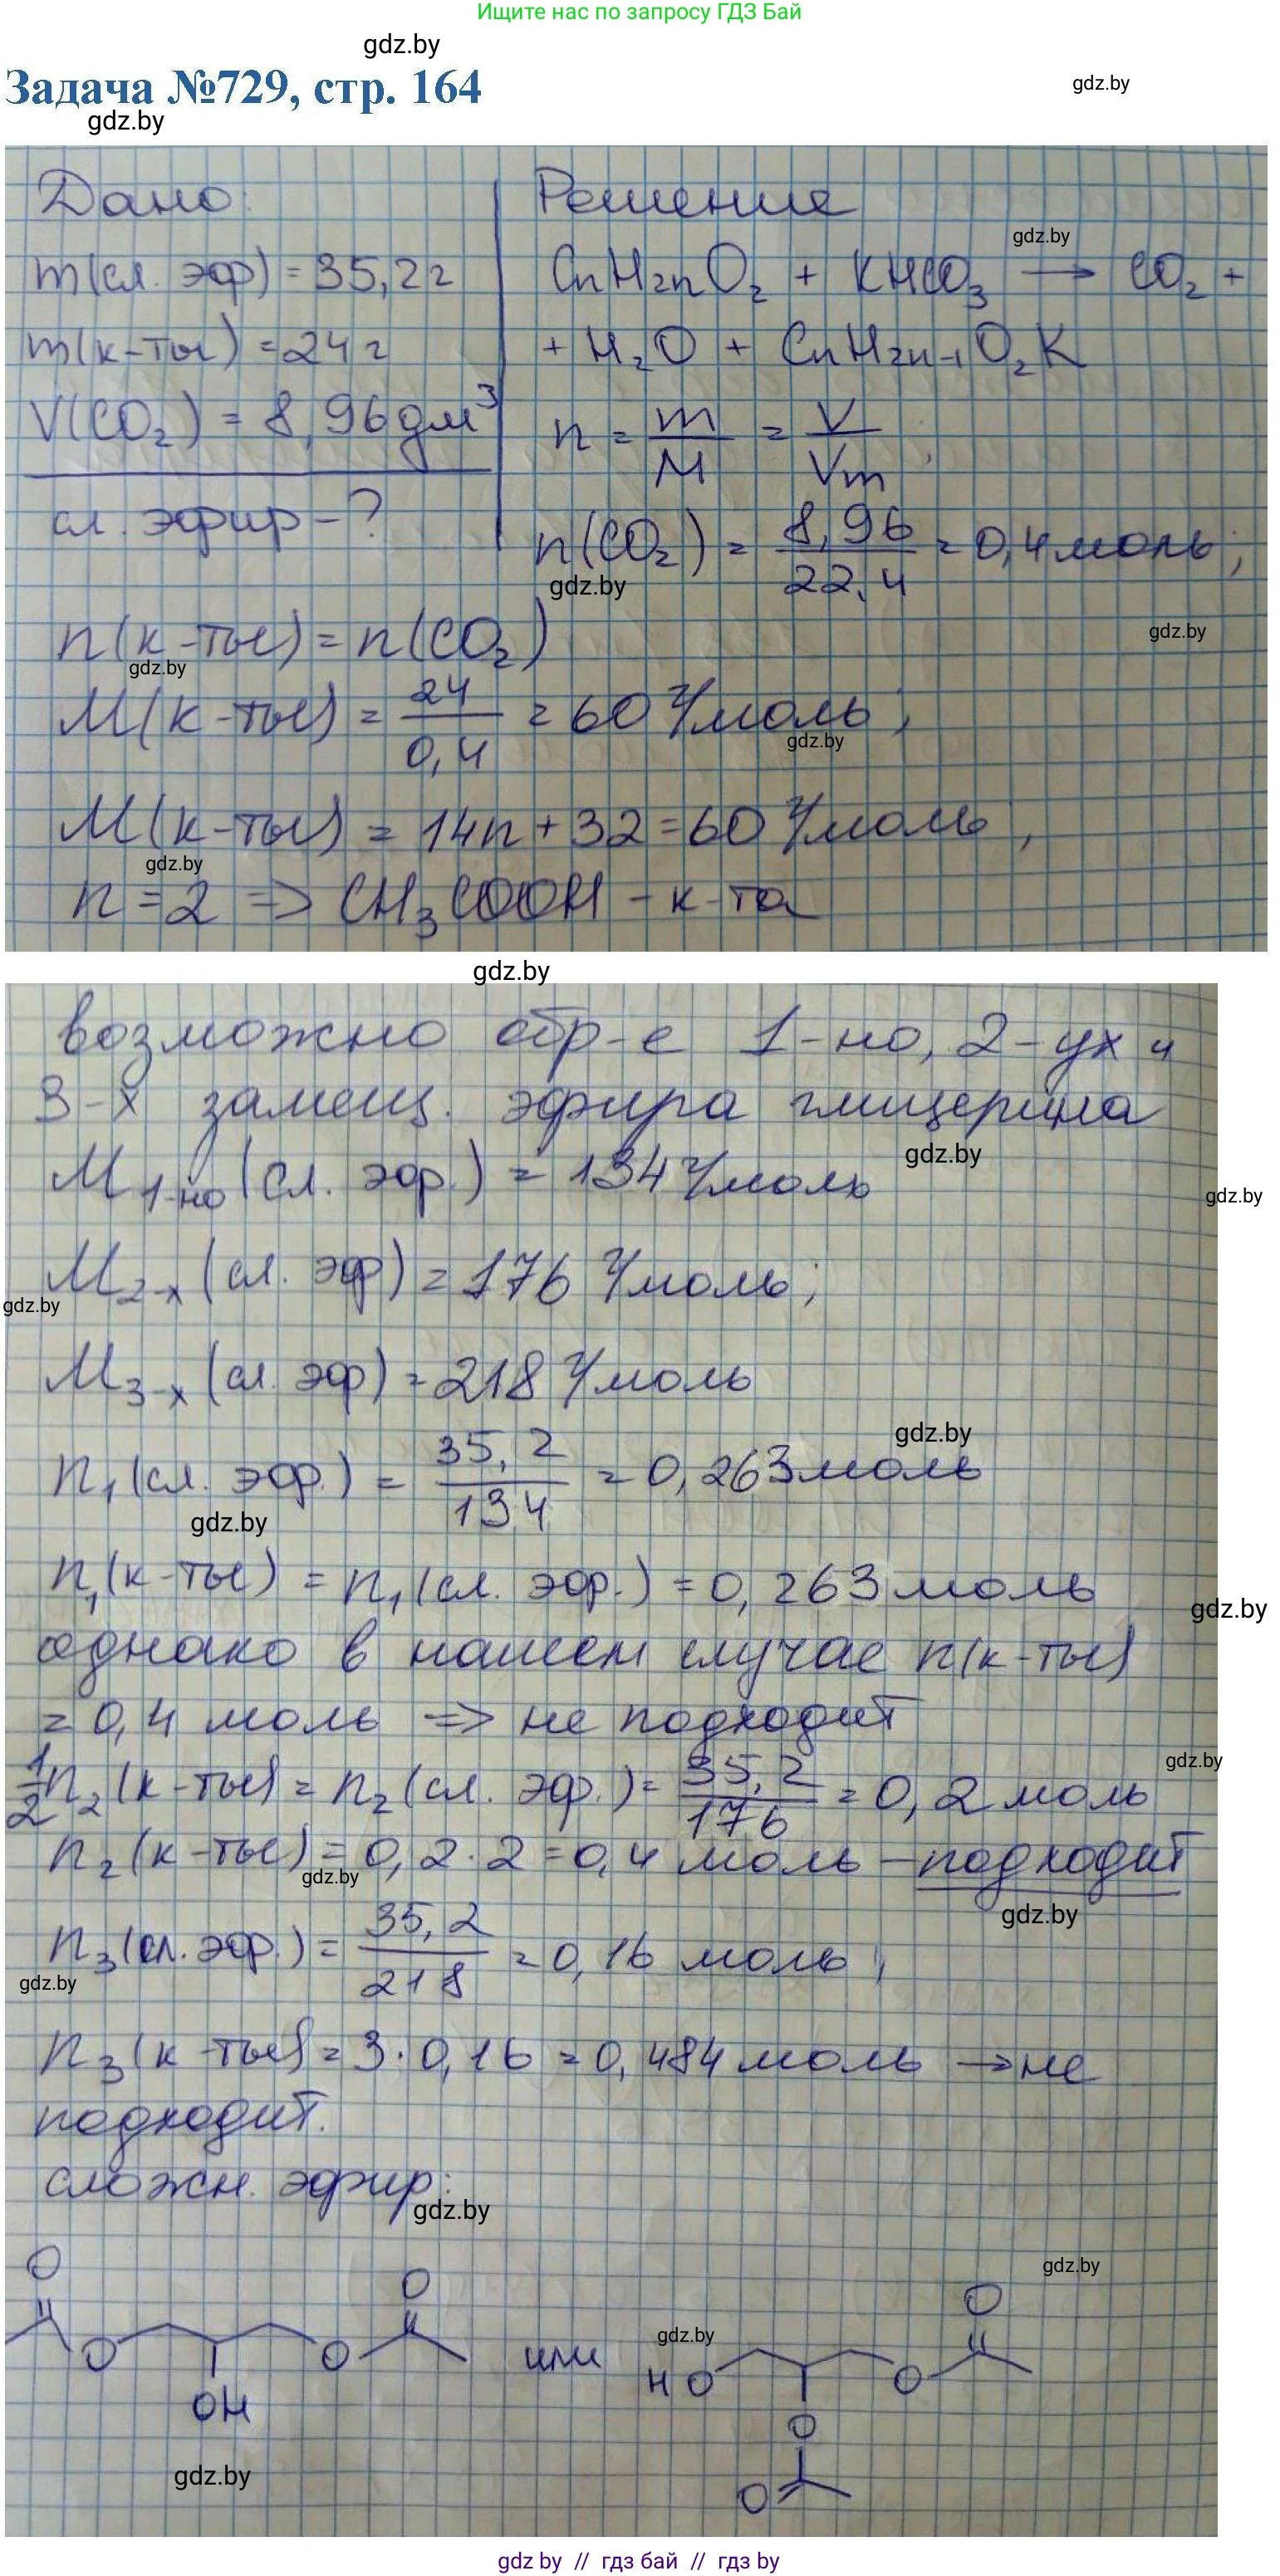 Ищите нас по запросу ГДЗ Бай
gdz.by
Задача №729, стр. 164
gdz.by
gdz.by
Дано:
Решение
gdz.by
m(сл. эфр) = 35,2 г
CnH2nO2 + KHCO3 → CO2 +
m(к-ты) = 24 г
+ H2O + CnH2n-1O2K
V(CO2) = 8,96 дм³
n = m/M = V/Vm;
сл. эфир - ?
n(CO2) = 8,96/22,4 = 0,4 моль;
gdz.by
n(к-ты) = n(CO2)
gdz.by
gdz.by
M(к-ты) = 24/0,4 = 60 г/моль;
gdz.by
M(к-ты) = 14n + 32 = 60 г/моль,
gdz.by
n = 2 => CH3COOH - к-та
gdz.by
возможно обр-е 1-но, 2-ух и
3-х замещ. эфира глицерина
gdz.by
M1-но (сл. эфр.) = 134 г/моль
gdz.by
M2-х (сл. эфр) = 176 г/моль;
gdz.by
M3-х (сл. эфр) = 218 г/моль
gdz.by
n1(сл. эфр.) = 35,2/134 = 0,263 моль
gdz.by
n1(к-ты) = n1(сл. эфр.) = 0,263 моль
gdz.by
однако в нашем случае n(к-ты)
= 0,4 моль => не подходит
gdz.by
1/2 n2(к-ты) = n2(сл. эфр.) = 35,2/176 = 0,2 моль
n2(к-ты) = 0,2·2 = 0,4 моль - подходит
gdz.by
gdz.by
n3(сл. эфр.) = 35,2/218 = 0,16 моль;
gdz.by
n3(к-ты) = 3·0,16 = 0,484 моль → не
подходит.
сложн. эфир:
gdz.by
gdz.by
O
O
O
O
O
OH
или
gdz.by
HO
O
O
O
gdz.by
gdz by // гдз бай // гдз by